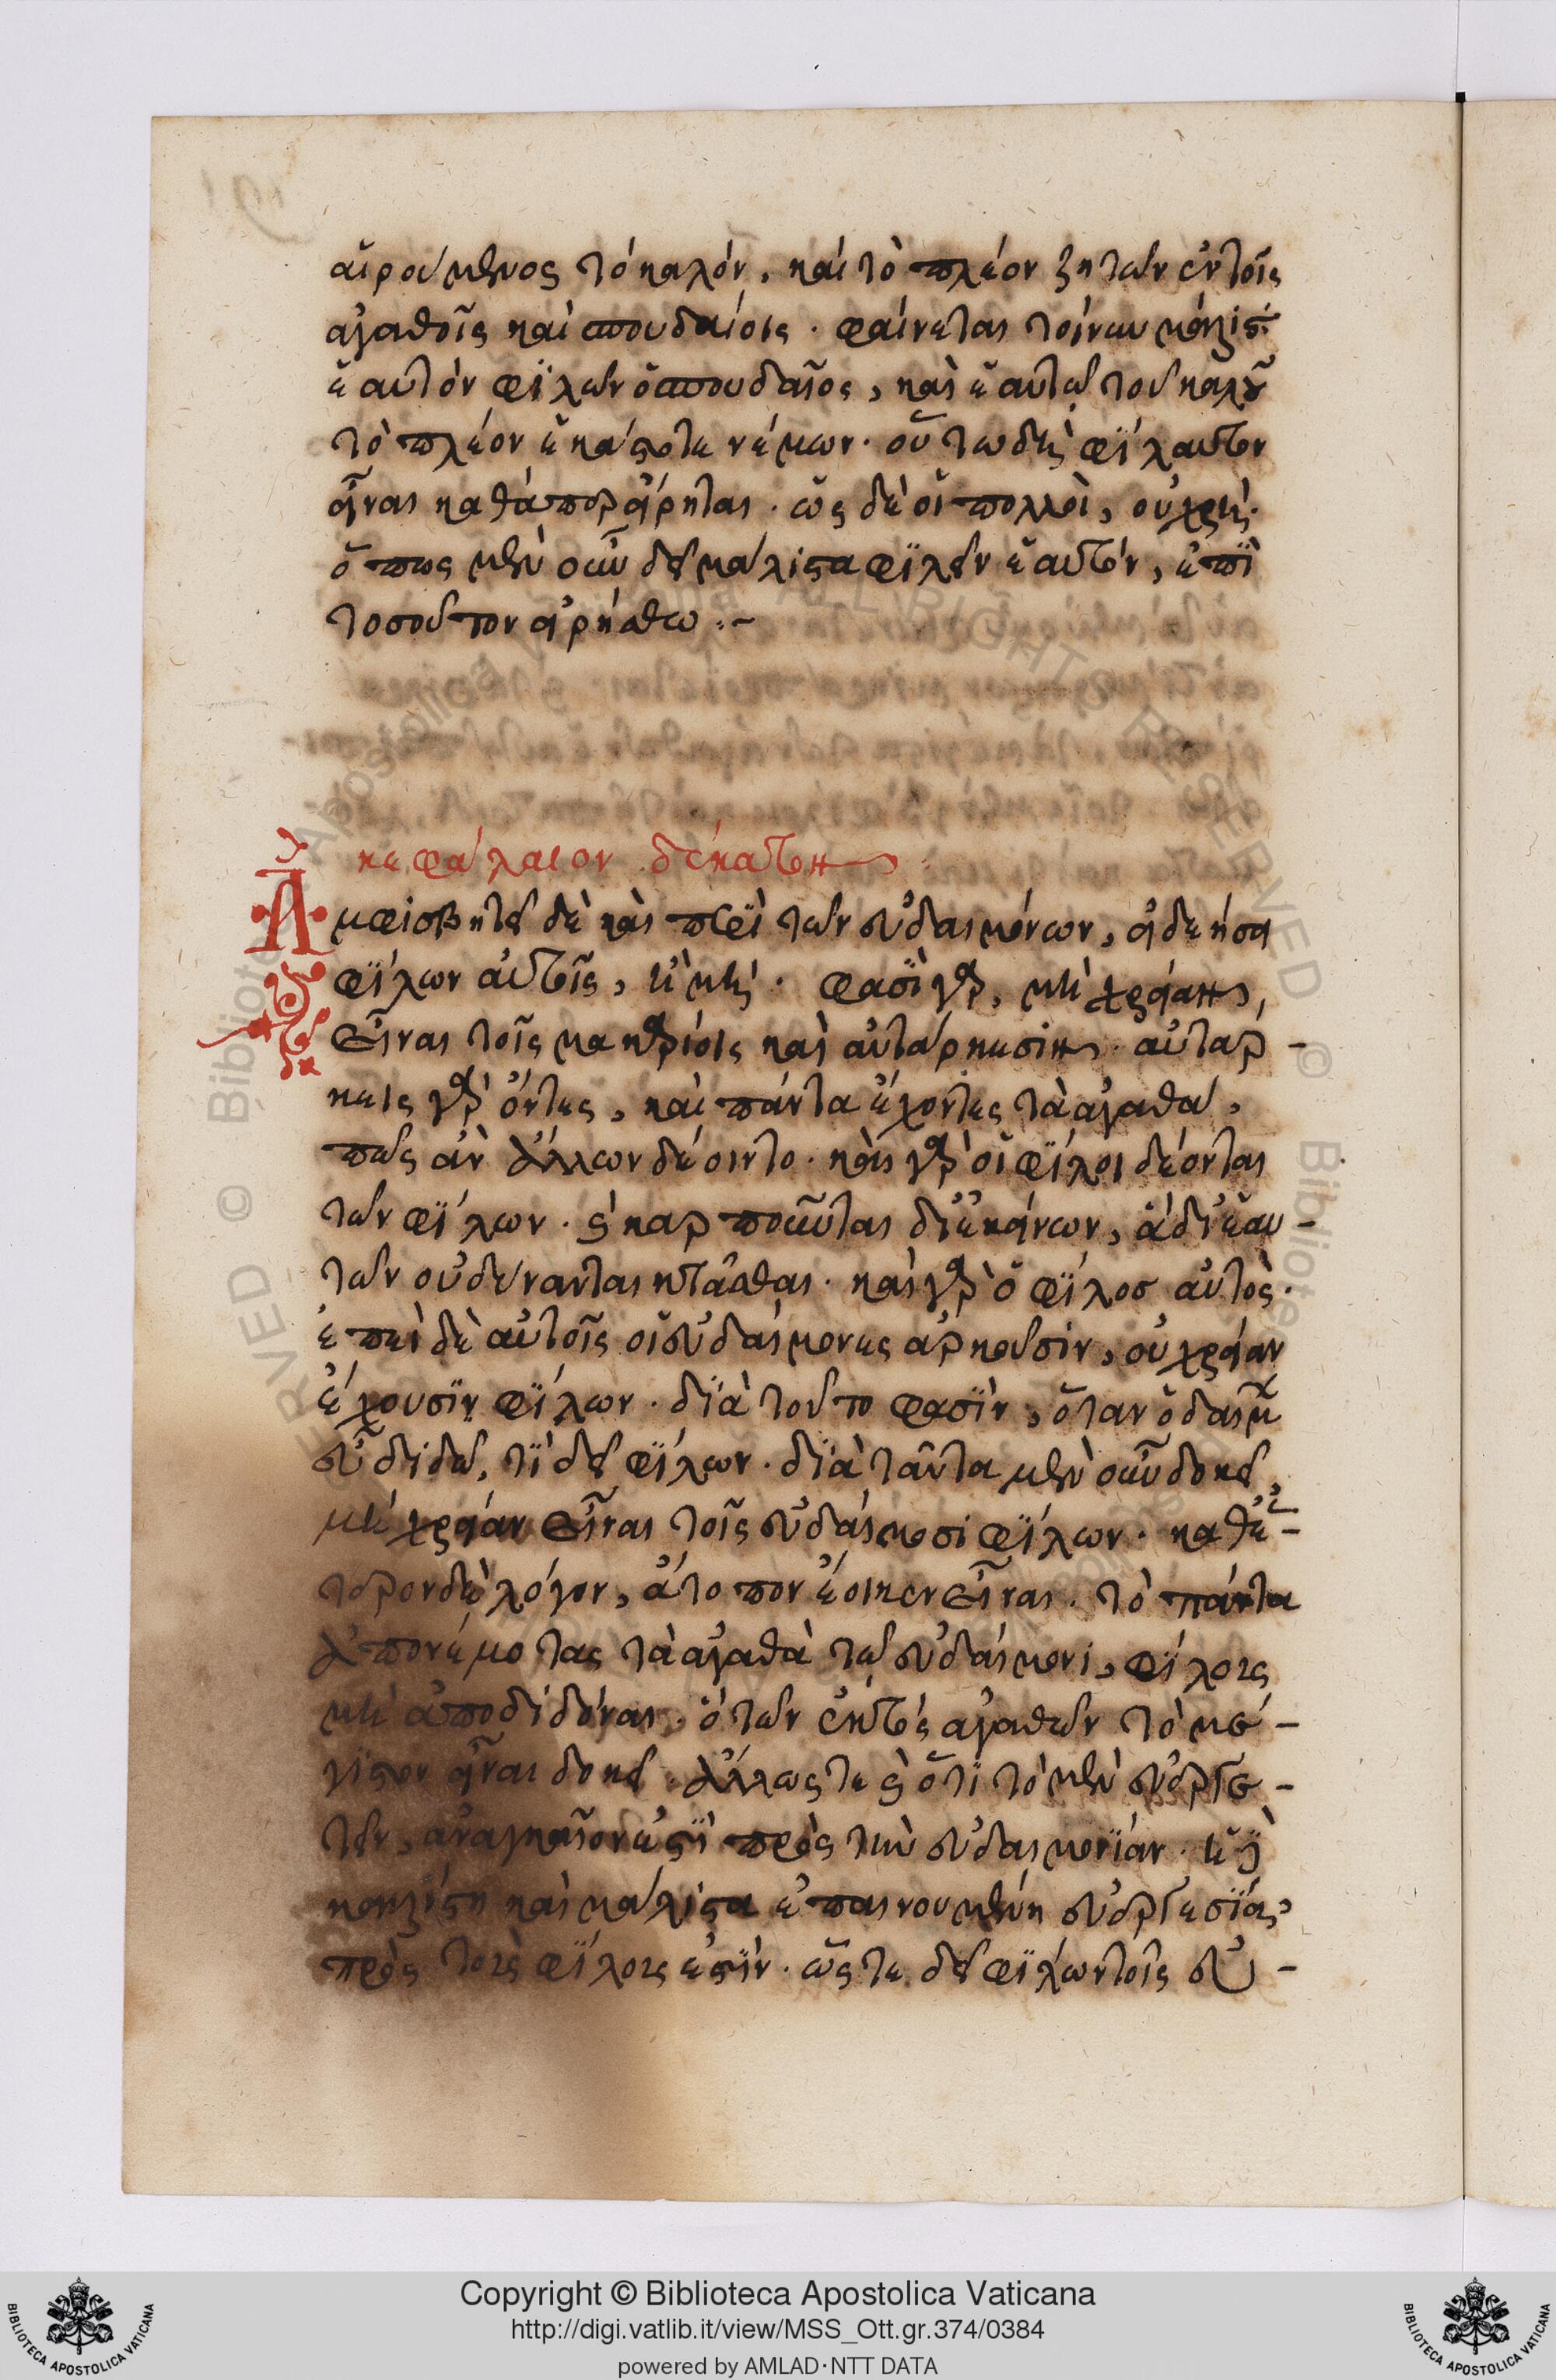 αἱρούμενος τὸ καλόν, καὶ τὸ πλέον ζητῶν ἐν τοῖς
ἀγαθοῖς καὶ σπουδαίοις. φαίνεται τοίνυν μάλιστ
ἑαυτὸν φιλῶν ὁ σπουδαῖος, καὶ ἑαυτῷ τοῦ καλοῦ
τὸ πλέον ἑκάστοτε νέμων. οὕτω δεῖ φίλαυτον
εἶναι καθάπερ εἴρηται. ὡς δὲ οἱ πολλοὶ, οὐ χρή.
ὅπως μὲν οὖν δεῖ μάλιστα φιλεῖν ἑαυτόν, ἐπὶ
τοσοῦτον εἰρήσθω :-
κεφάλαιον δέκατον
Ἀμφισβητεῖ δὲ καὶ περὶ τῶν εὐδαιμόνων, εἰ δεήσει
φίλων αὐτοῖς, ἢ μή. φασὶ γὰρ, μὴ χρείαν
εἶναι τοῖς μακαρίοις καὶ αὐτάρκεσιν. αὐτάρ-
κεις γὰρ ὄντες, καὶ πάντα ἔχοντες τὰ ἀγαθά,
πῶς ἂν ἄλλων δέοιντο. καὶ γὰρ οἱ φίλοι δέονται
τῶν φίλων. δι' ἐκείνων, ἃ δι' ἑαυ-
τῶν οὐ δύνανται κτᾶσθαι. καὶ γὰρ ὁ φίλος αὐτὸς.
ἐπεὶ δὲ αὐτοῖς οἱ εὐδαίμονες ἀρκοῦσιν, οὐ χρείαν
ἔχουσιν φίλων. διὰ τοῦτο φασὶν, ὅταν ὁ δαίμων
εὖ διδῷ, τί δεῖ φίλων. διὰ ταῦτα μὲν οὖν δοκεῖ,
μὴ χρείαν εἶναι τοῖς εὐδαίμοσι φίλων. καθ' ἕ-
τερον δὲ λόγον, ἄτοπον ἔοικεν εἶναι. τὸ πάντα
ἀπονέμοντας τὰ ἀγαθὰ τῷ εὐδαίμονι, φίλους
μὴ ἀποδιδόναι. ὃ τῶν ἐκτὸς ἀγαθῶν τὸ μέ-
γιστον εἶναι δοκεῖ. ἄλλως τε καὶ ὅτι τὸ μὲν εὐεργε-
τεῖν, ἀναγκαῖον ἐστὶ πρὸς τὴν εὐδαιμονίαν. ἡ δὲ
καλλίστη καὶ μάλιστα ἐπαινουμένη εὐεργεσία,
πρὸς τοὺς φίλους ἐστίν. ὥστε δεῖ φίλων τοῖς εὐ-